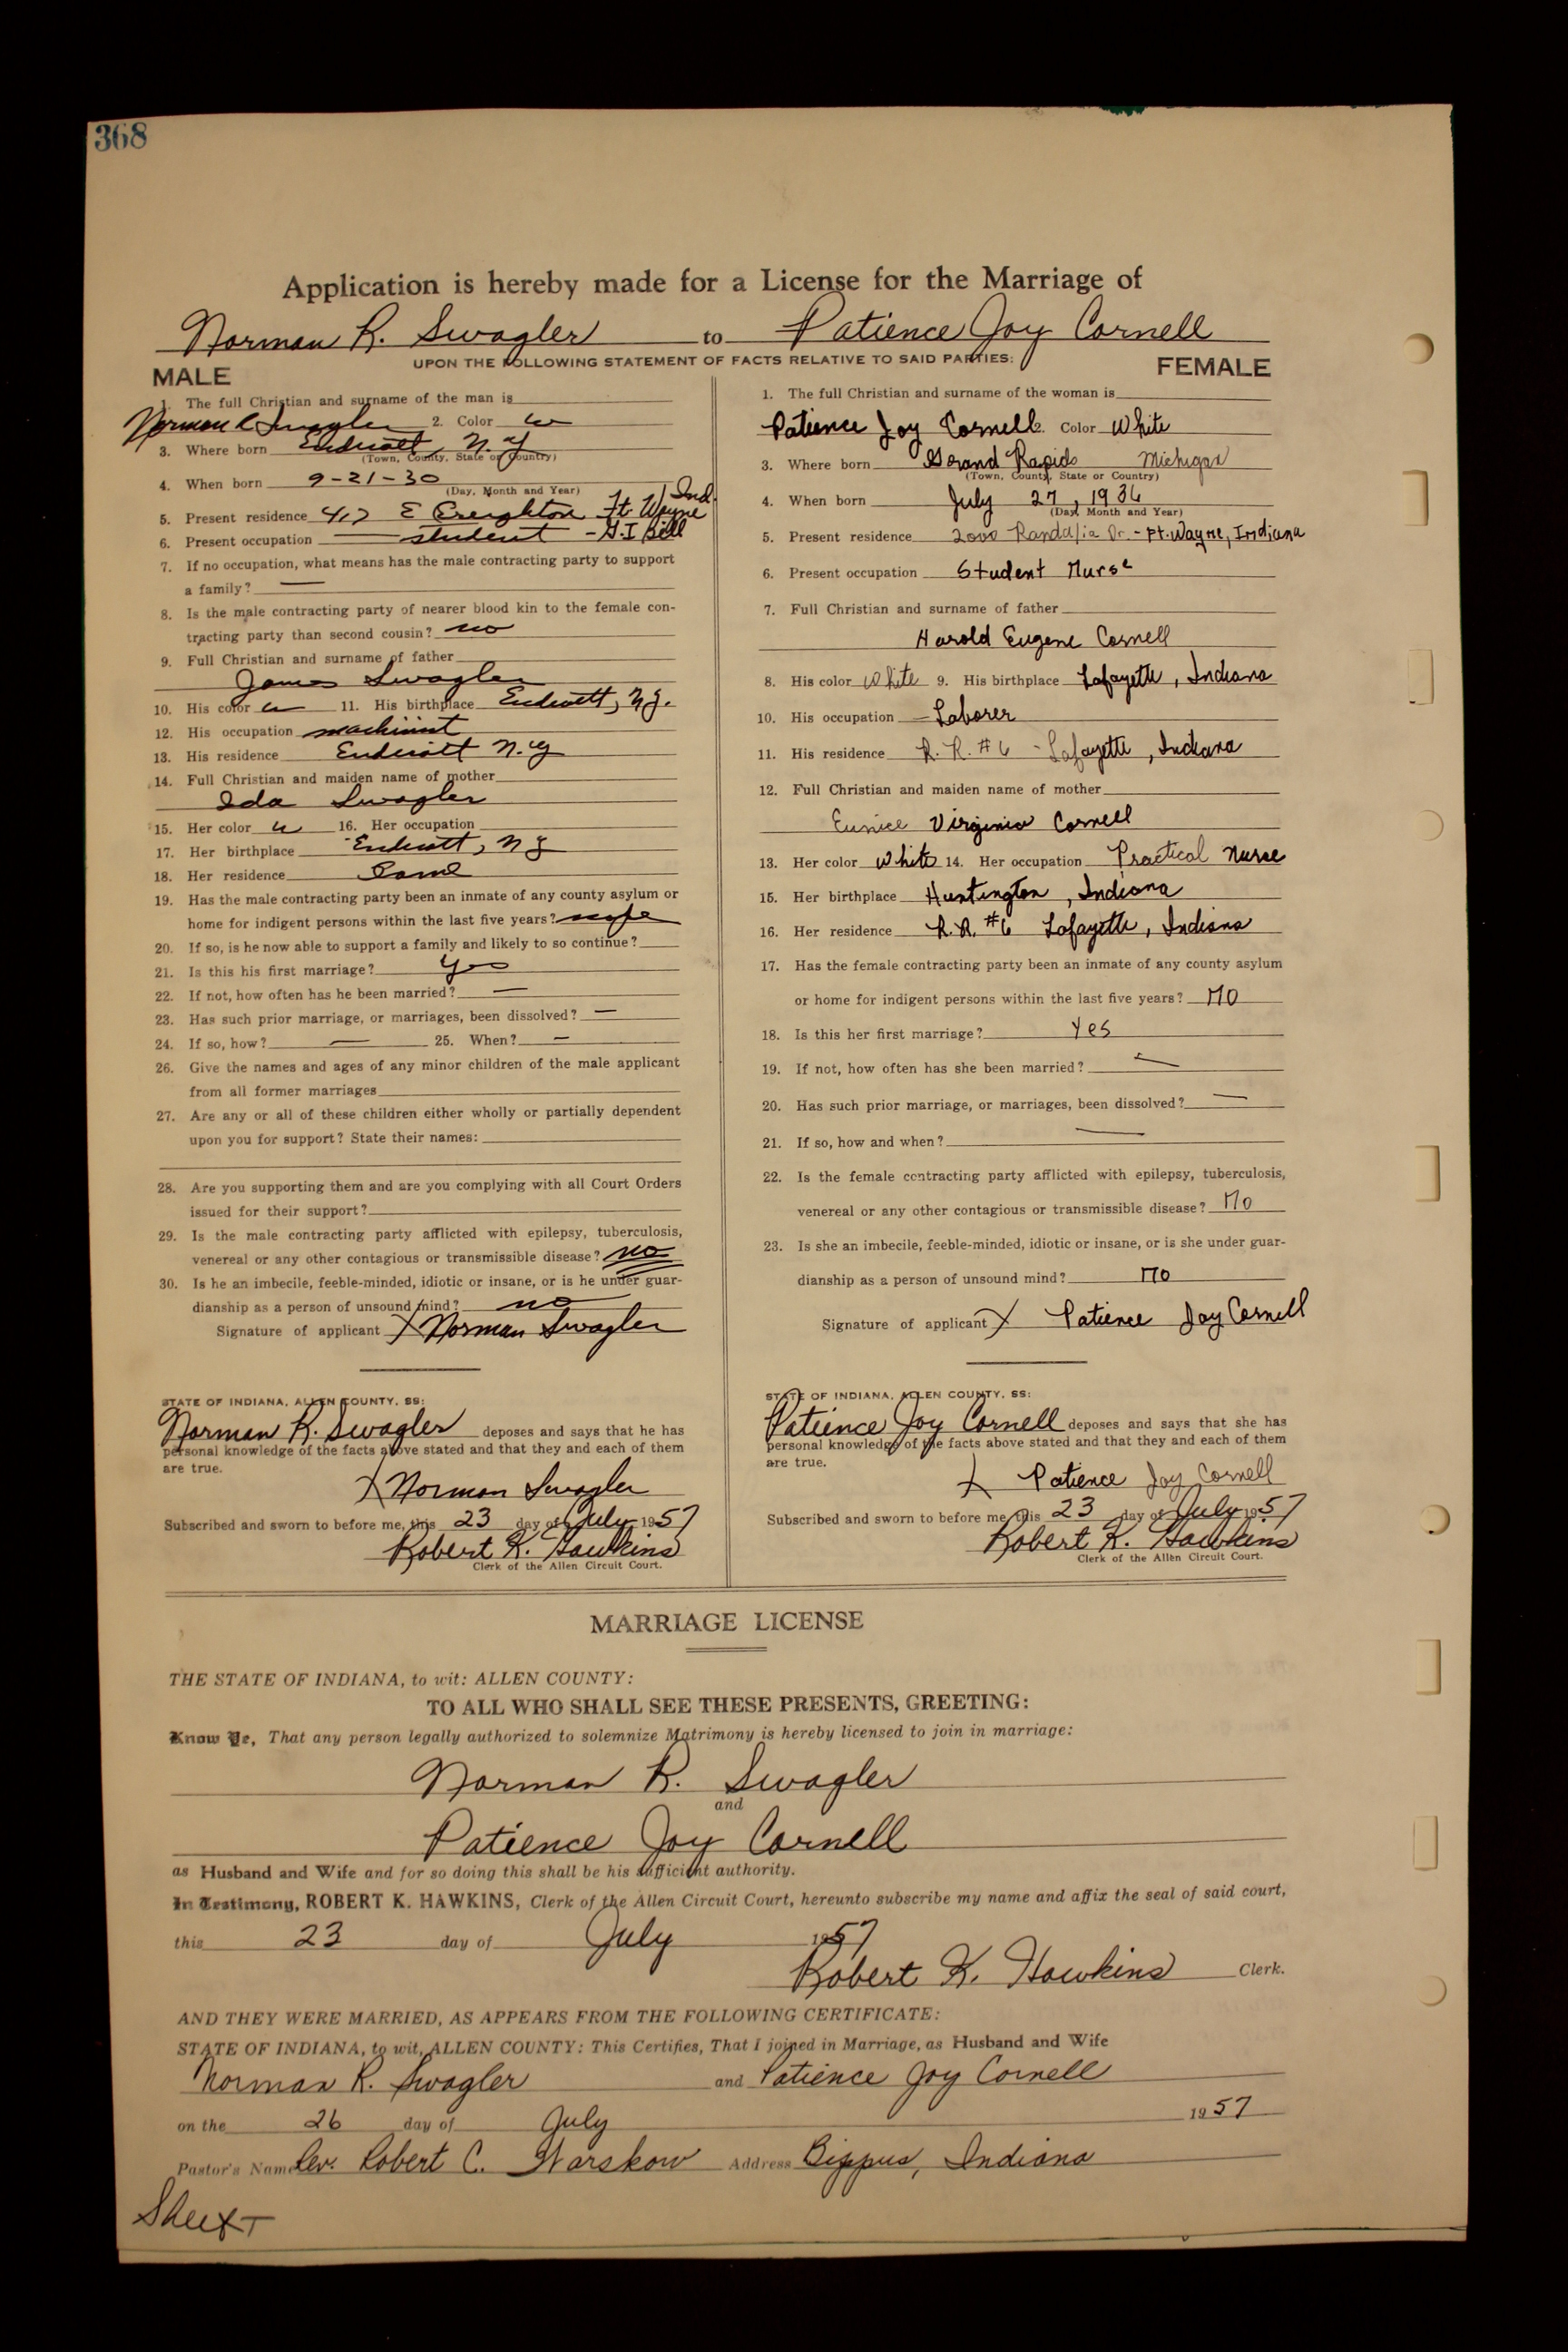 368
Application is hereby made for a License for the Marriage of
Norman R. Swagler to Patience Joy Cornell
UPON THE FOLLOWING STATEMENT OF FACTS RELATIVE TO SAID PARTIES:
MALE
1. The full Christian and surname of the man is
Norman R Swagler 2. Color W
3. Where born Endicott, N.Y
(Town, County, State or Country)
4. When born 9-21-30
(Day, Month and Year)
5. Present residence 417 E Creighton Ft Wayne Ind.
6. Present occupation student - G.I Bill
7. If no occupation, what means has the male contracting party to support
a family? —
8. Is the male contracting party of nearer blood kin to the female con-
tracting party than second cousin? no
9. Full Christian and surname of father
James Swagler
10. His color w 11. His birthplace Endicott, N.Y.
12. His occupation machinist
13. His residence Endicott N.Y
14. Full Christian and maiden name of mother
Ida Swagler
15. Her color w 16. Her occupation
17. Her birthplace Endicott, N Y
18. Her residence Same
19. Has the male contracting party been an inmate of any county asylum or
home for indigent persons within the last five years?
20. If so, is he now able to support a family and likely to so continue?
21. Is this his first marriage? Yes
22. If not, how often has he been married? —
23. Has such prior marriage, or marriages, been dissolved? —
24. If so, how? — 25. When? —
26. Give the names and ages of any minor children of the male applicant
from all former marriages
27. Are any or all of these children either wholly or partially dependent
upon you for support? State their names:
28. Are you supporting them and are you complying with all Court Orders
issued for their support?
29. Is the male contracting party afflicted with epilepsy, tuberculosis,
venereal or any other contagious or transmissible disease? no
30. Is he an imbecile, feeble-minded, idiotic or insane, or is he under guar-
dianship as a person of unsound mind? no
Signature of applicant X Norman Swagler
STATE OF INDIANA, ALLEN COUNTY, SS:
Norman R. Swagler deposes and says that he has
personal knowledge of the facts above stated and that they and each of them
are true.
X Norman Swagler
Subscribed and sworn to before me, this 23 day of July 1957
Robert K. Hawkins
Clerk of the Allen Circuit Court.
FEMALE
1. The full Christian and surname of the woman is
Patience Joy Cornell 2. Color White
3. Where born Grand Rapids Michigan
(Town, County, State or Country)
4. When born July 27, 1936
(Day, Month and Year)
5. Present residence 2000 Randalia Dr. - Ft. Wayne, Indiana
6. Present occupation Student Nurse
7. Full Christian and surname of father
Harold Eugene Cornell
8. His color White 9. His birthplace Lafayette, Indiana
10. His occupation Laborer
11. His residence R. R. #6 - Lafayette, Indiana
12. Full Christian and maiden name of mother
Eunice Virginia Cornell
13. Her color White 14. Her occupation Practical Nurse
15. Her birthplace Huntington, Indiana
16. Her residence R.R. #6 Lafayette, Indiana
17. Has the female contracting party been an inmate of any county asylum
or home for indigent persons within the last five years? No
18. Is this her first marriage? Yes
19. If not, how often has she been married? —
20. Has such prior marriage, or marriages, been dissolved? —
21. If so, how and when? —
22. Is the female contracting party afflicted with epilepsy, tuberculosis,
venereal or any other contagious or transmissible disease? No
23. Is she an imbecile, feeble-minded, idiotic or insane, or is she under guar-
dianship as a person of unsound mind? No
Signature of applicant X Patience Joy Cornell
STATE OF INDIANA, ALLEN COUNTY, SS:
Patience Joy Cornell deposes and says that she has
personal knowledge of the facts above stated and that they and each of them
are true.
X Patience Joy Cornell
Subscribed and sworn to before me, this 23 day of July 1957
Robert K. Hawkins
Clerk of the Allen Circuit Court.
MARRIAGE LICENSE
THE STATE OF INDIANA, to wit: ALLEN COUNTY:
TO ALL WHO SHALL SEE THESE PRESENTS, GREETING:
Know Ye, That any person legally authorized to solemnize Matrimony is hereby licensed to join in marriage:
Norman R. Swagler
and
Patience Joy Cornell
as Husband and Wife and for so doing this shall be his sufficient authority.
In Testimony, ROBERT K. HAWKINS, Clerk of the Allen Circuit Court, hereunto subscribe my name and affix the seal of said court,
this 23 day of July 1957
Robert K. Hawkins Clerk.
AND THEY WERE MARRIED, AS APPEARS FROM THE FOLLOWING CERTIFICATE:
STATE OF INDIANA, to wit, ALLEN COUNTY: This Certifies, That I joined in Marriage, as Husband and Wife
Norman R. Swagler and Patience Joy Cornell
on the 26 day of July 1957
Pastor's Name Rev. Robert C. Warskow Address Bippus, Indiana